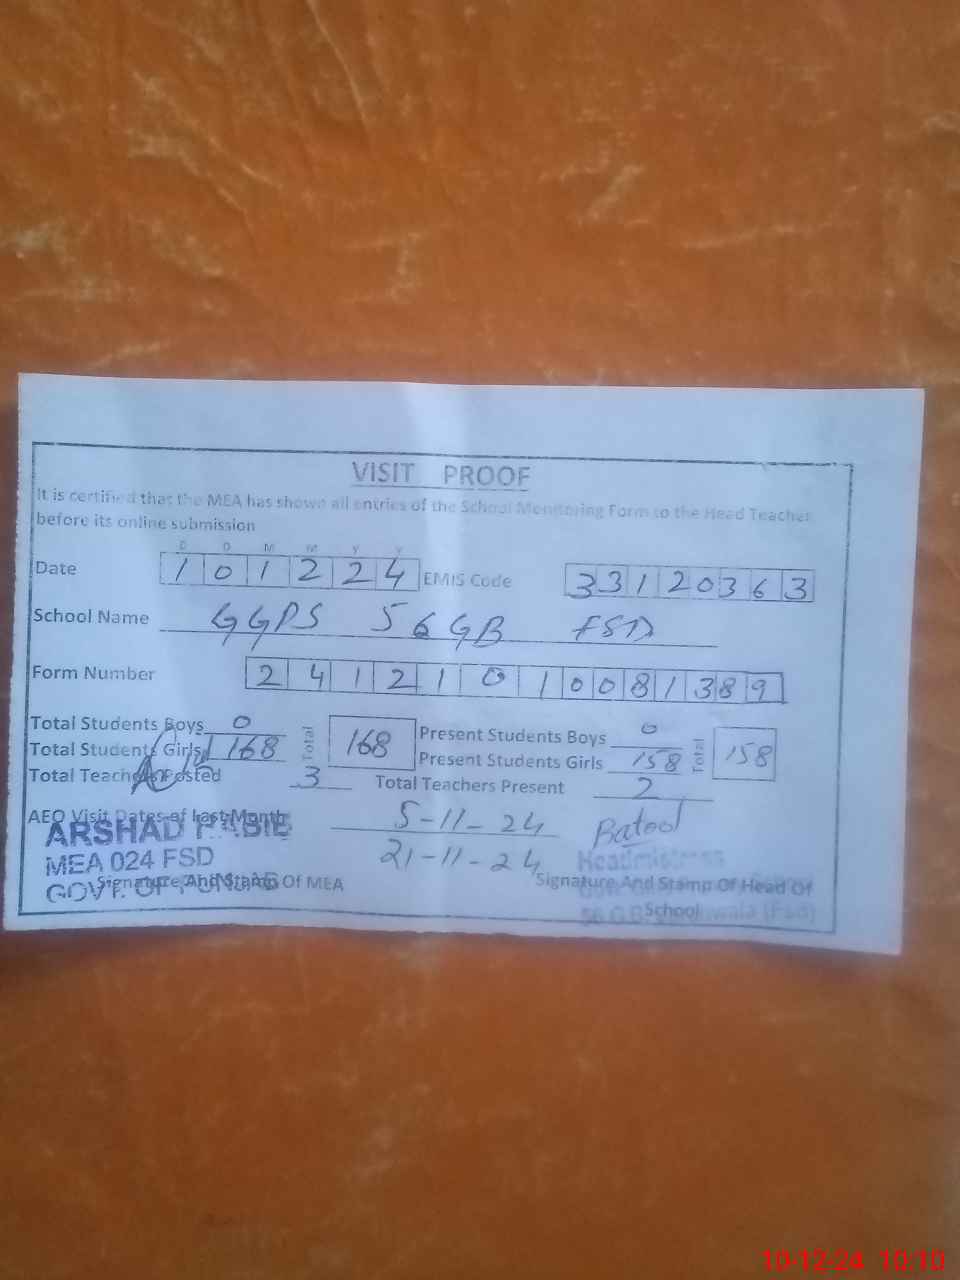 VISIT PROOF
It is certified that the MEA has shown all entries of the School Monitoring Form to the Head Teacher
before its online submission
D D M M Y Y
Date 1 0 1 2 2 4 EMIS Code 3 3 1 2 0 3 6 3
School Name GGPS 56 GB FSD
Form Number 2 4 1 2 1 0 1 0 0 8 1 3 8 9
Total Students Boys 0 Total 168 Present Students Boys 0 Total 158
Total Students Girls 168 Present Students Girls 158
Total Teachers Posted 3 Total Teachers Present 2
AEO Visit Dates of Last Month 5-11-24 Batool
21-11-24
ARSHAD
MEA 024 FSD
GOVT. OF PUNJAB
Headmistress
Signature And Stamp Of MEA Signature And Stamp Of Head Of
School
56 G.B (Fsd)
10-12-24 10:10